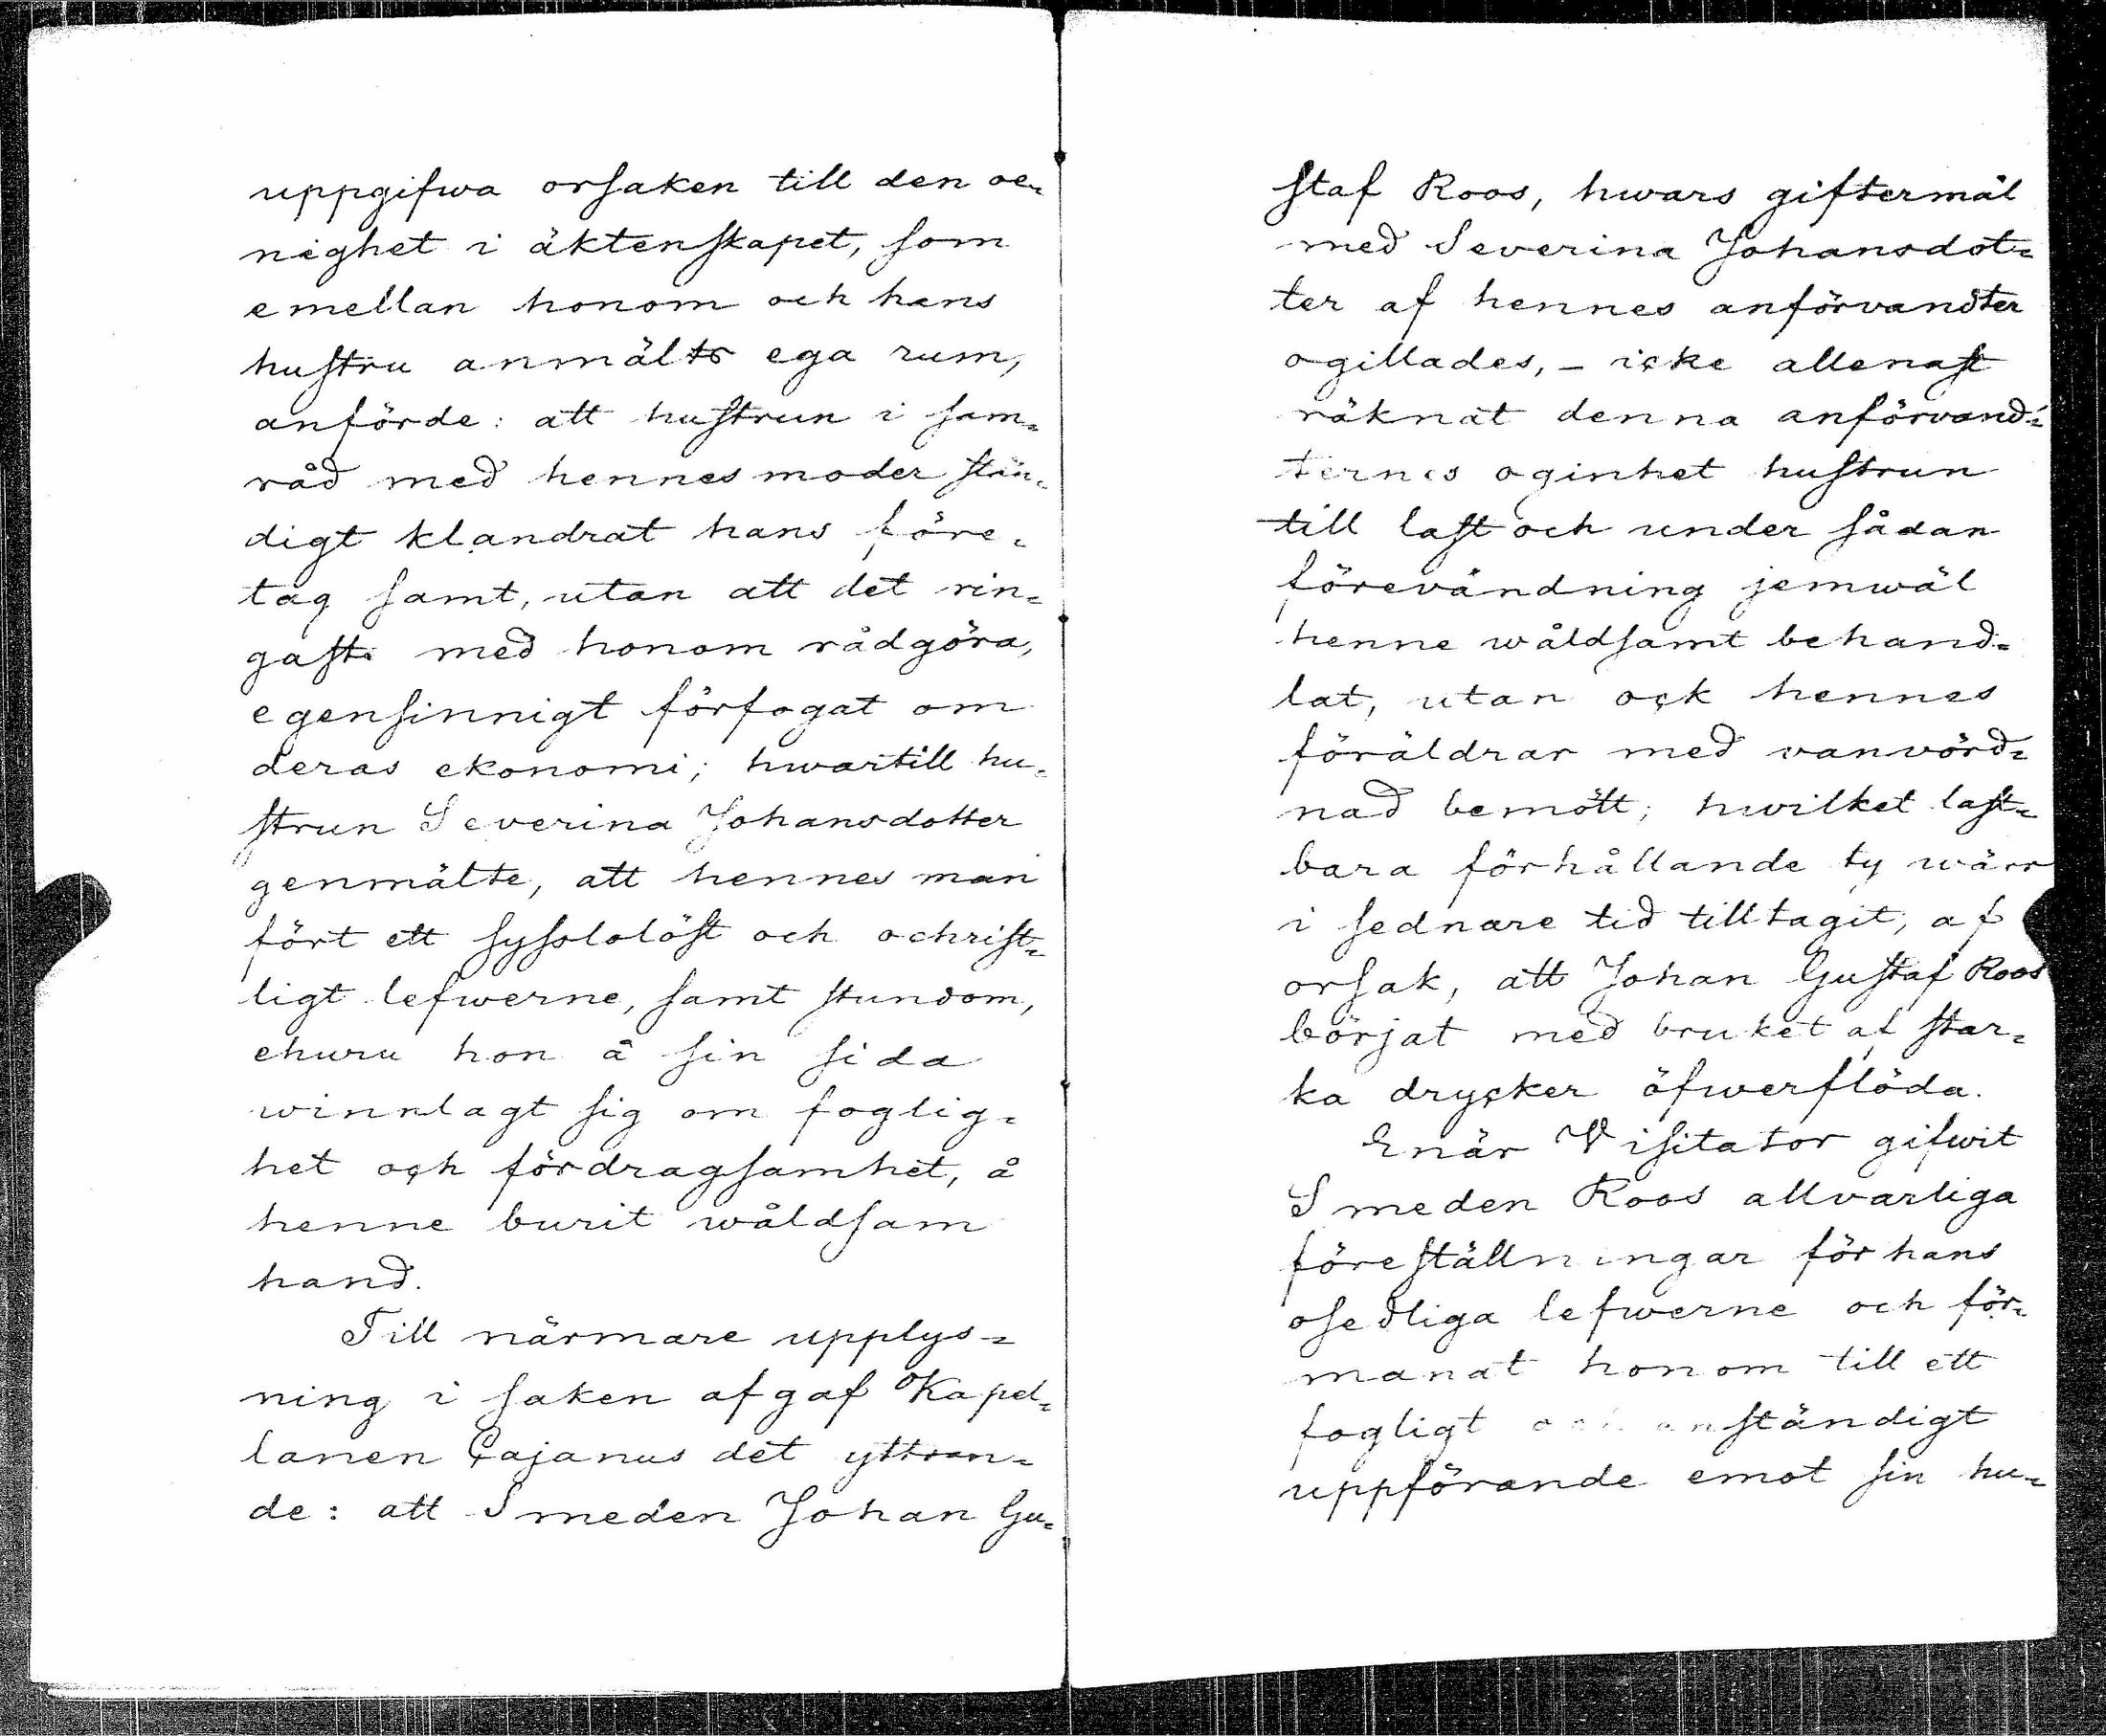 uppgifwa orsaken till den oe-
nighet i äktenskapet, som
emellan honom och hans
hustru anmälts ega rum,
anförde: att hustrun i sam-
råd med hennes moder stän-
digt klandrat hans före-
tag samt, utan att det rin-
gaste med honom rådgöra,
egensinnigt förfogat om
deras ekonomi; hwartill hu-
strun Severina Johansdotter
genmälte, att hennes man
fört ett syslolöst och ochrist-
ligt lefwerne, samt stundom,
ehuru hon å sin sida
winnlagt sig om foglig-
het och fördragsamhet, å
henne burit wåldsam
hand.
Till närmare upplys-
ning i saken afgaf Kapel-
lanen Cajanus det yttran-
de: att Smeden Johan Gu-
staf Roos, hwars giftermål
med Severina Johansdot-
ter af hennes anförvandter
ogillades, - icke allenast
räknat denna anförvand-
ternes oginhet hustrun
till last och under sådan
förevändning jemwäl
henne wåldsamt behand-
lat, utan ock hennes
föräldrar med vanvörd-
nad bemött; hwilket last-
bara förhållande ty wärr
i sednare tid tilltagit, af
orsak, att Johan Gustaf Roos
börjat med bruket af star-
ka drycker öfwerflöda.
Enär Visitator gifwit
Smeden Roos allvarliga
föreställningar för hans
osedliga lefwerne och för-
manat honom till ett
fogligt och anständigt
uppförande emot sin hu-